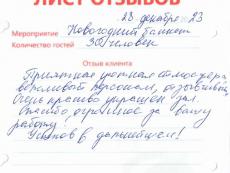 ЛИСТ ОТЗЫВОВ
28 декабря 23
Мероприятие Новогодний банкет
Количество гостей 30 человек
Отзыв клиента
Приятная уютная атмосфера,
вежливый персонал, отзывчивый
Очень красиво украшен зал.
Спасибо огромное за вашу
работу!
Успехов в дальнейшем!